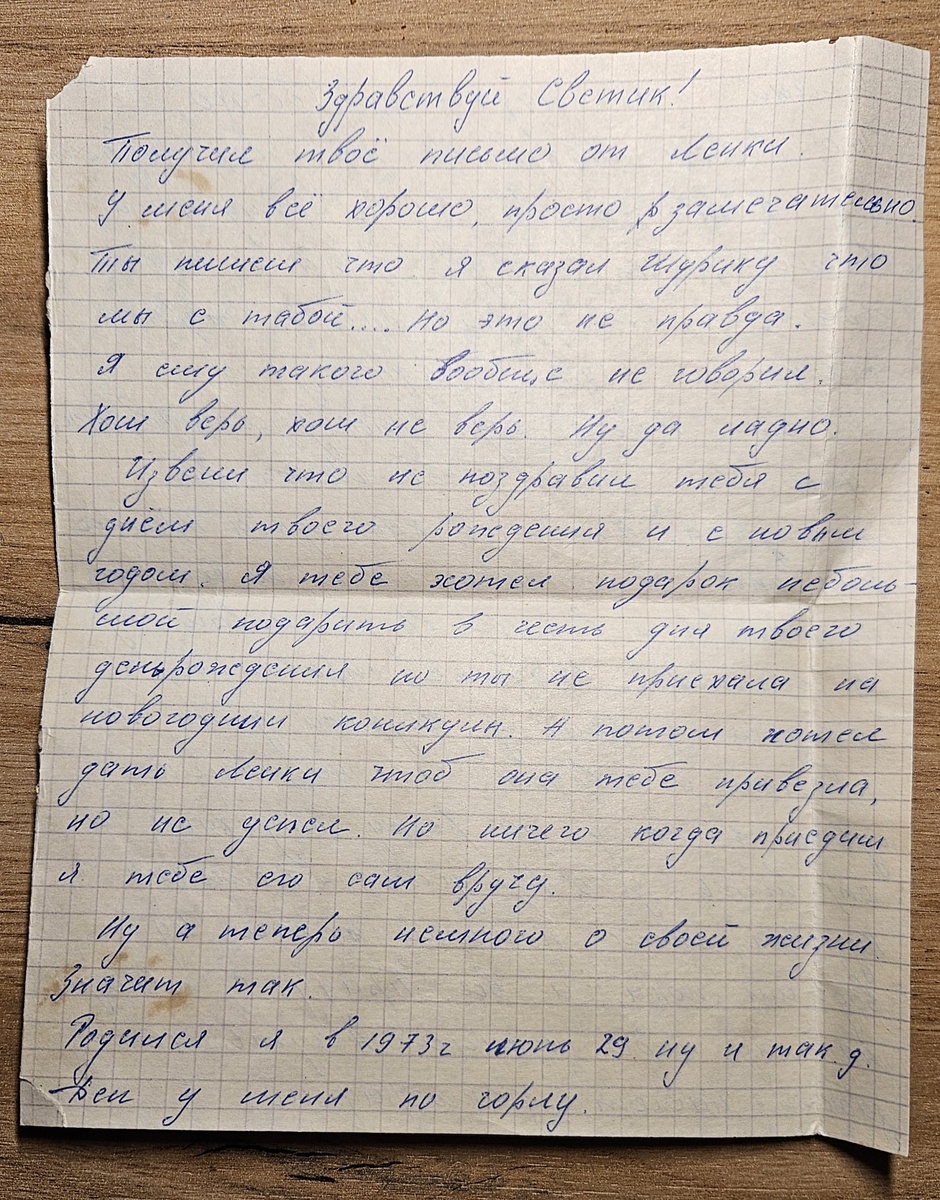 Здравствуй Светик!
Получил твоё письмо от Ленки.
У меня всё хорошо, просто замечательно.
Ты пишеш что я сказал Шурику что
мы с табой.... Но это не правда.
Я ему такого вообще не говорил.
Хош верь, хош не верь. Ну да ладно.
Извени что не поздравил тебя с
днём твоего рождения и с новым
годом. Я тебе хотел подарок неболь-
шой подарить в честь дня твоего
деньрождения но ты не приехала на
новогоднии коникули. А потом хотел
дать Ленки чтоб она тебе привезла,
но не успел. Но ничего когда приедиш
я тебе его сам вручу.
Ну а теперь немного о своей жизни.
Значит так.
Родился я в 1973г июнь 29 ну и так д.
Дел у меня по горлу.